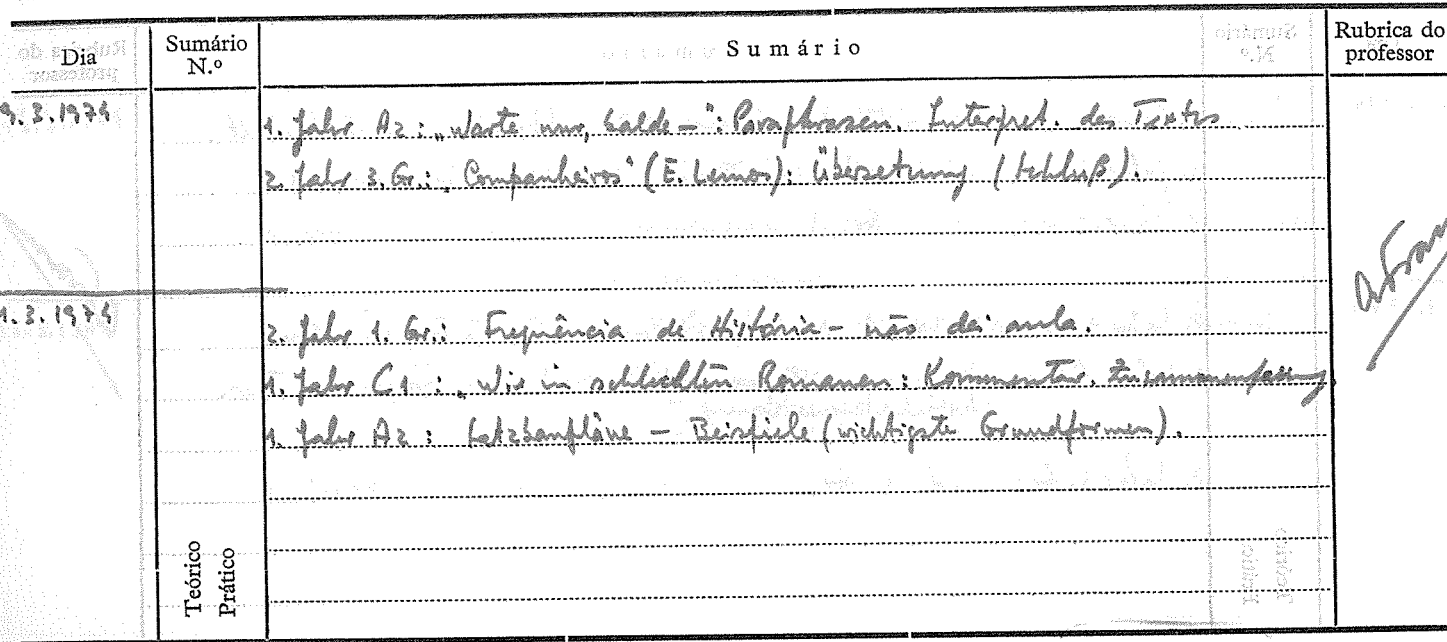 Dia
Sumário N.º
Sumário
Rubrica do professor
9.3.1974
1. Jahr A2: „Warte nur, balde –": Paraphrasen. Interpret. des Textes
2. Jahr 3. Gr.: „Companheiros" (E. Lemos): Übersetzung (Schluß).
1.3.1974
2. Jahr 1. Gr.: Frequência de História – não dei aula.
1. Jahr C1: „Wie in schlechten Romanen: Kommentar. Zusammenfassung
1. Jahr A2: Satzbaupläne – Beispiele (wichtigste Grundformen).
Teórico
Prático